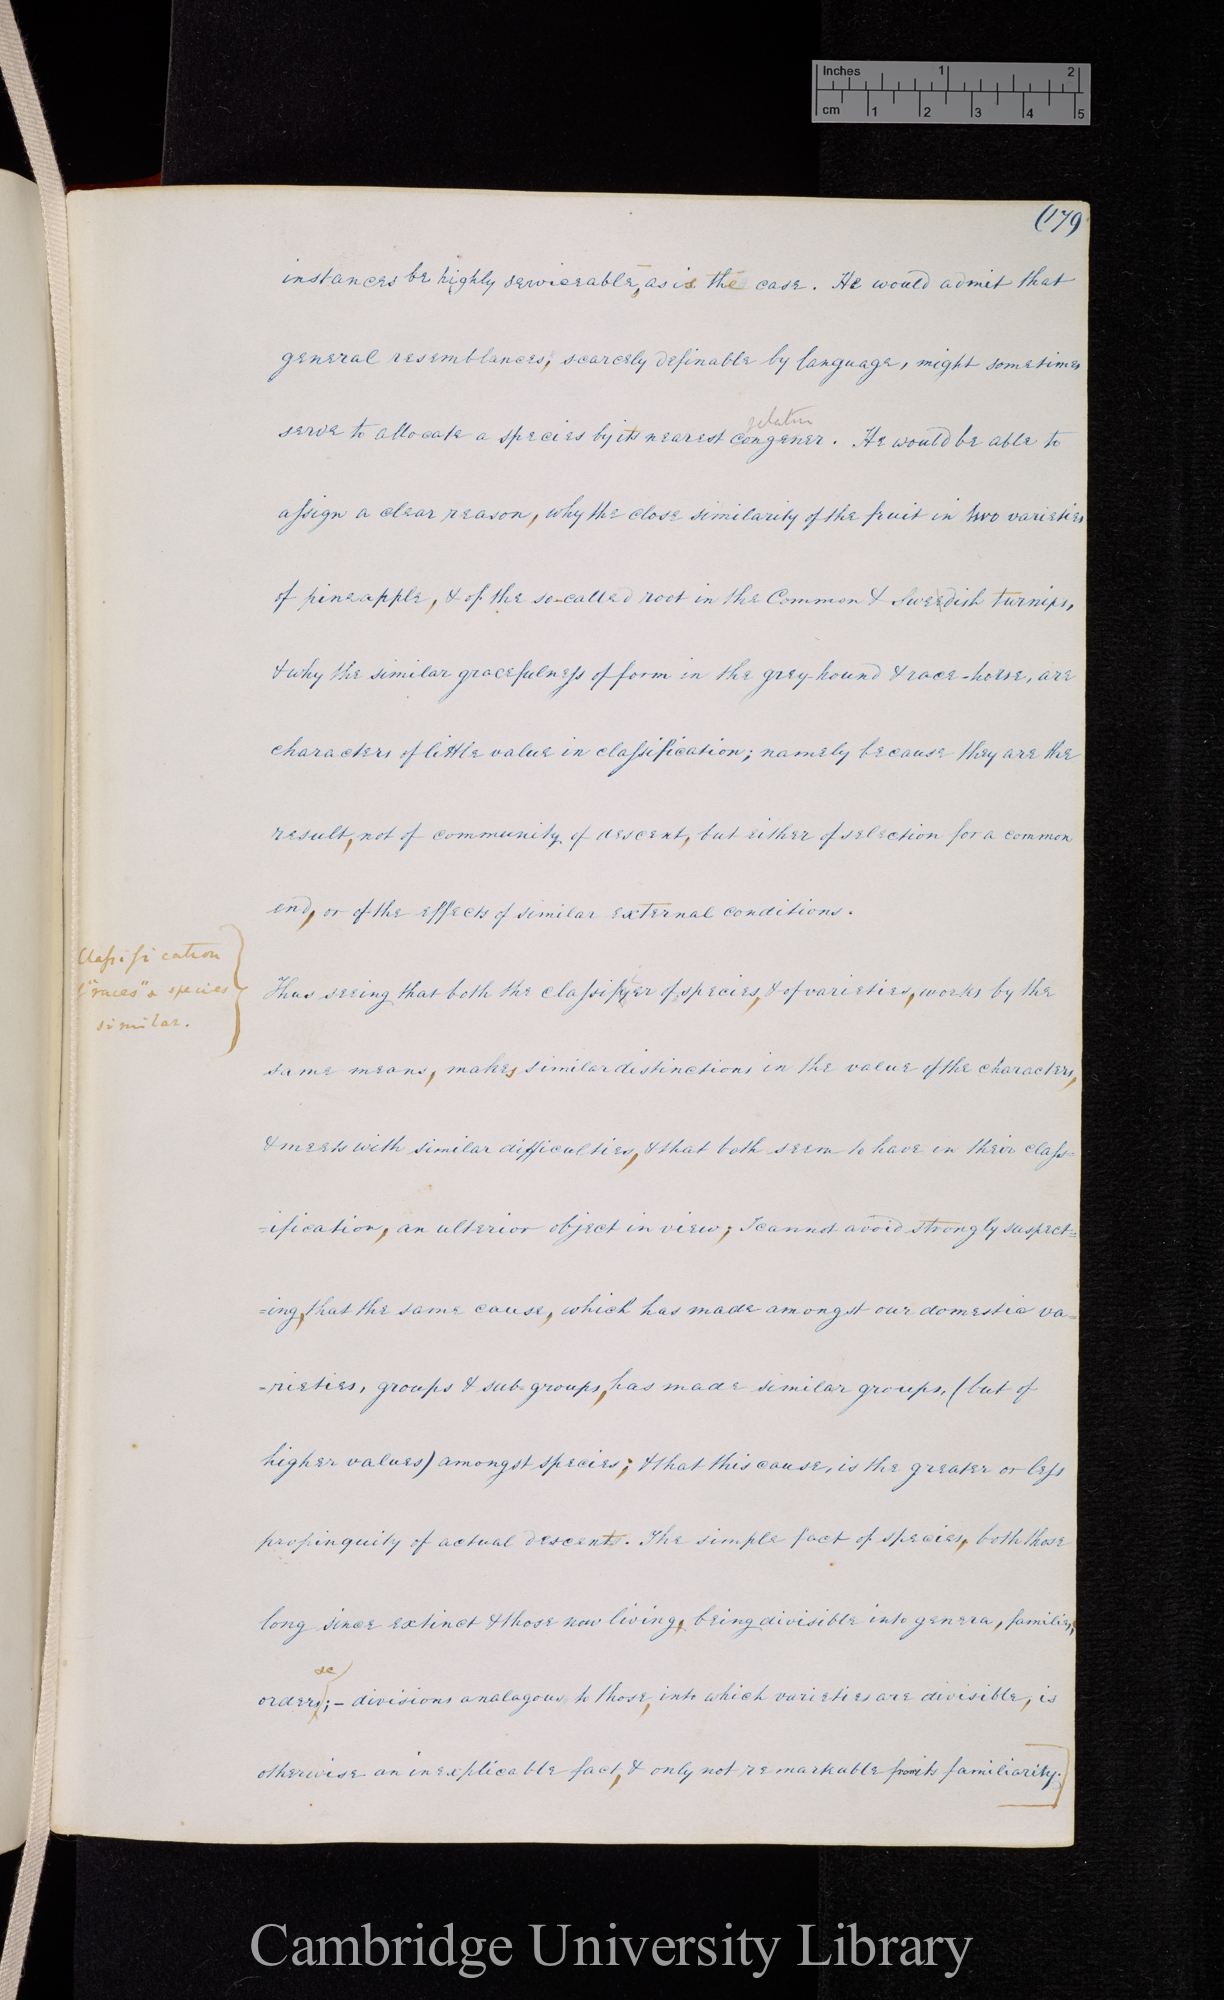 Inches 1 2
cm 1 2 3 4 5
(179
instances be highly serviceable, as is the case. He would admit that
general resemblances, scarcely definable by language, might sometimes
serve to allocate a species by its nearest congener. He would be able to
assign a clear reason, why the close similarity of the fruit in two varieties
of pineapple, & of the so-called root in the Common & Sweedish turnips,
& why the similar gracefulness of form in the grey-hound & race-horse, are
characters of little value in classification; namely because they are the
result, not of community of descent, but either of selection for a common
end, or of the effects of similar external conditions.
Classification
"races" & species
similar.
Thus seeing that both the classifyer of species, & of varieties, works by the
same means, makes similar distinctions in the value of the characters,
& meets with similar difficulties, & that both seem to have in their class=
=ification, an ulterior object in view; I cannot avoid strongly suspect=
=ing, that the same cause, which has made amongst our domestic va=
=rieties, groups & sub-groups, has made similar groups, (but of
higher values) amongst species; & that this cause, is the greater or less
propinquity of actual descents. The simple fact of species, both those
long since extinct & those now living, being divisible into genera, families,
&c
orders; – divisions analagous to those, into which varieties are divisible, is
otherwise an inexplicable fact, & only not remarkable from its familiarity.
Cambridge University Library